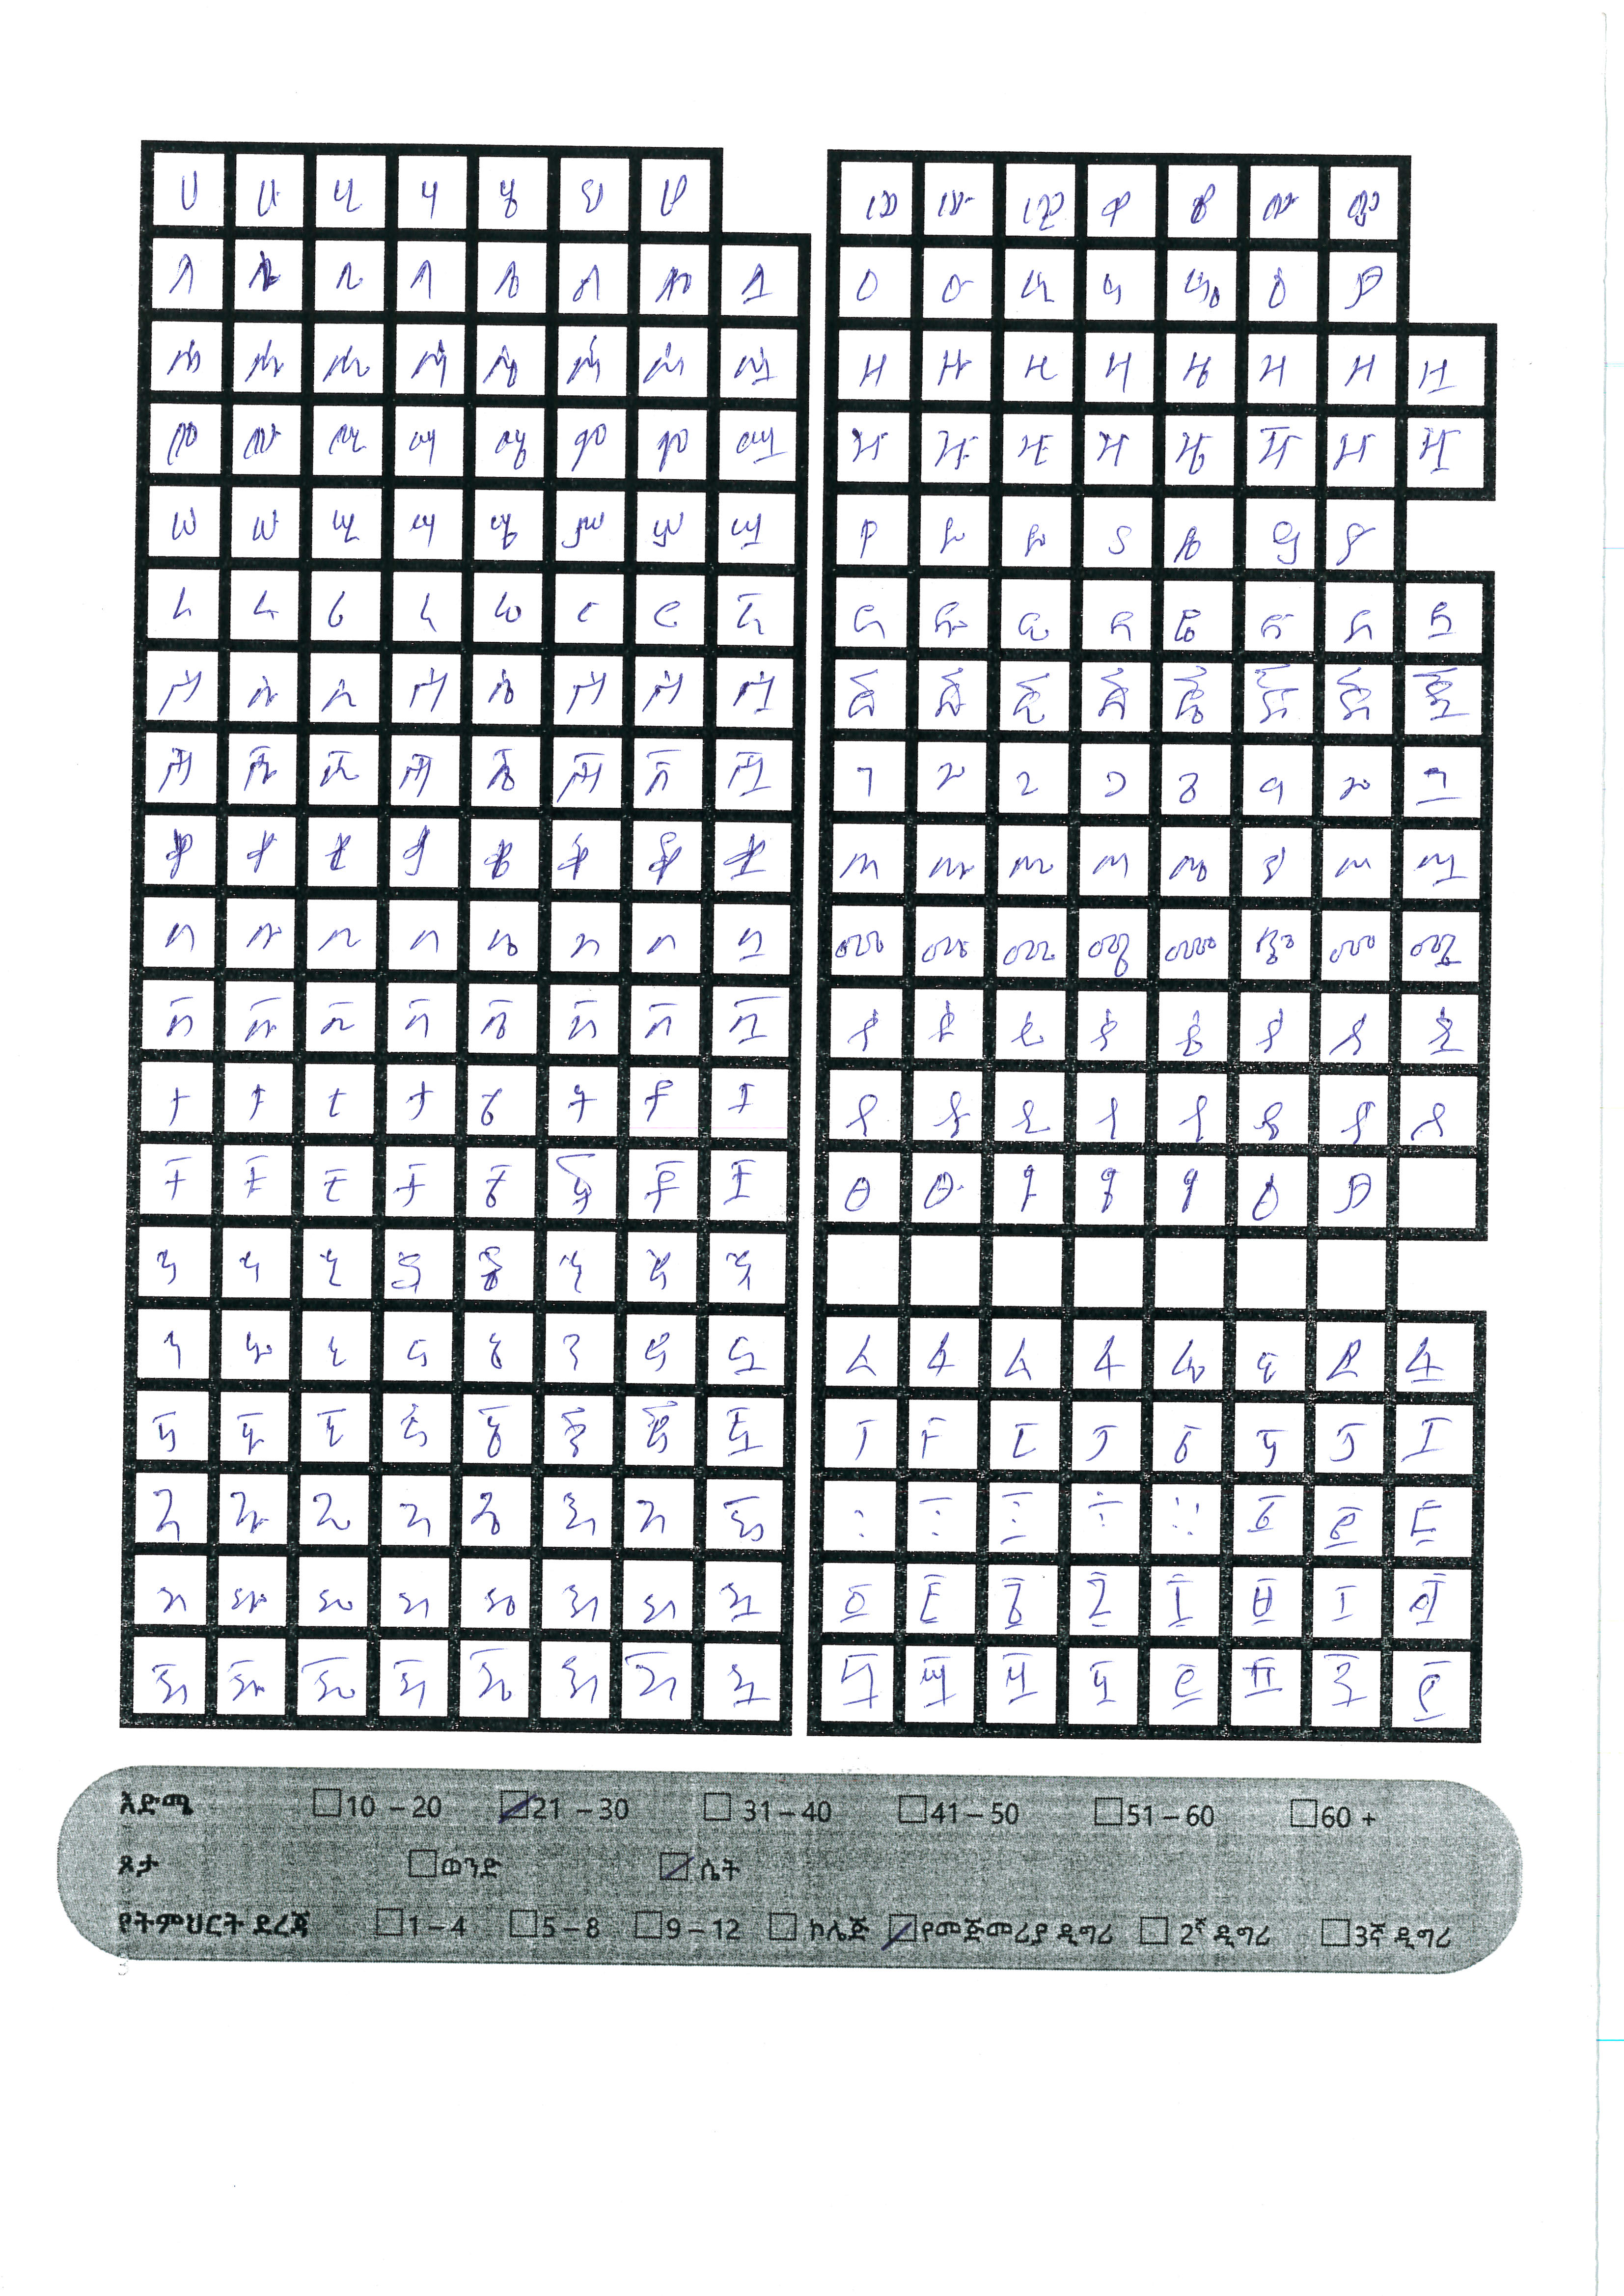 ሀ ሁ ሂ ሃ ሄ ህ ሆ
ለ ሉ ሊ ላ ሌ ል ሎ ሏ
ሐ ሑ ሒ ሓ ሔ ሕ ሖ ሗ
መ ሙ ሚ ማ ሜ ም ሞ ሟ
ሠ ሡ ሢ ሣ ሤ ሥ ሦ ሧ
ረ ሩ ሪ ራ ሬ ር ሮ ሯ
ሰ ሱ ሲ ሳ ሴ ስ ሶ ሷ
ሸ ሹ ሺ ሻ ሼ ሽ ሾ ሿ
ቀ ቁ ቂ ቃ ቄ ቅ ቆ ቋ
በ ቡ ቢ ባ ቤ ብ ቦ ቧ
ቨ ቩ ቪ ቫ ቬ ቭ ቮ ቯ
ተ ቱ ቲ ታ ቴ ት ቶ ቷ
ቸ ቹ ቺ ቻ ቼ ች ቾ ቿ
ኀ ኁ ኂ ኃ ኄ ኅ ኆ ኋ
ነ ኑ ኒ ና ኔ ን ኖ ኗ
ኘ ኙ ኚ ኛ ኜ ኝ ኞ ኟ
አ ኡ ኢ ኣ ኤ እ ኦ ኧ
ከ ኩ ኪ ካ ኬ ክ ኮ ኳ
ኸ ኹ ኺ ኻ ኼ ኽ ኾ
ወ ዉ ዊ ዋ ዌ ው ዎ
ዐ ዑ ዒ ዓ ዔ ዕ ዖ
ዘ ዙ ዚ ዛ ዜ ዝ ዞ ዟ
ዠ ዡ ዢ ዣ ዤ ዥ ዦ ዧ
የ ዩ ዪ ያ ዬ ይ ዮ
ደ ዱ ዲ ዳ ዴ ድ ዶ ዷ
ጀ ጁ ጂ ጃ ጄ ጅ ጆ ጇ
ገ ጉ ጊ ጋ ጌ ግ ጎ ጓ
ጠ ጡ ጢ ጣ ጤ ጥ ጦ ጧ
ጨ ጩ ጪ ጫ ጬ ጭ ጮ ጯ
ጰ ጱ ጲ ጳ ጴ ጵ ጶ ጷ
ጸ ጹ ጺ ጻ ጼ ጽ ጾ ጿ
ፀ ፁ ፂ ፃ ፄ ፅ ፆ
ፈ ፉ ፊ ፋ ፌ ፍ ፎ ፏ
ፐ ፑ ፒ ፓ ፔ ፕ ፖ ፗ
እድሜ 10 – 20 21 – 30 31 – 40 41 – 50 51 – 60 60 +
ጾታ ወንድ ሴት
የትምህርት ደረጃ 1 – 4 5 – 8 9 – 12 ኮሌጅ የመጀመሪያ ዲግሪ 2ኛ ዲግሪ 3ኛ ዲግሪ